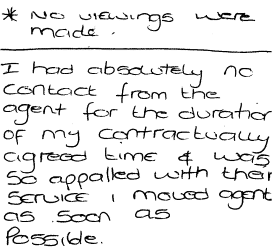 * No viewings were
made.
I had absolutely no
contact from the
agent for the duration
of my contractually
agreed time & was
so appalled with their
service I moved agent
as soon as
possible.